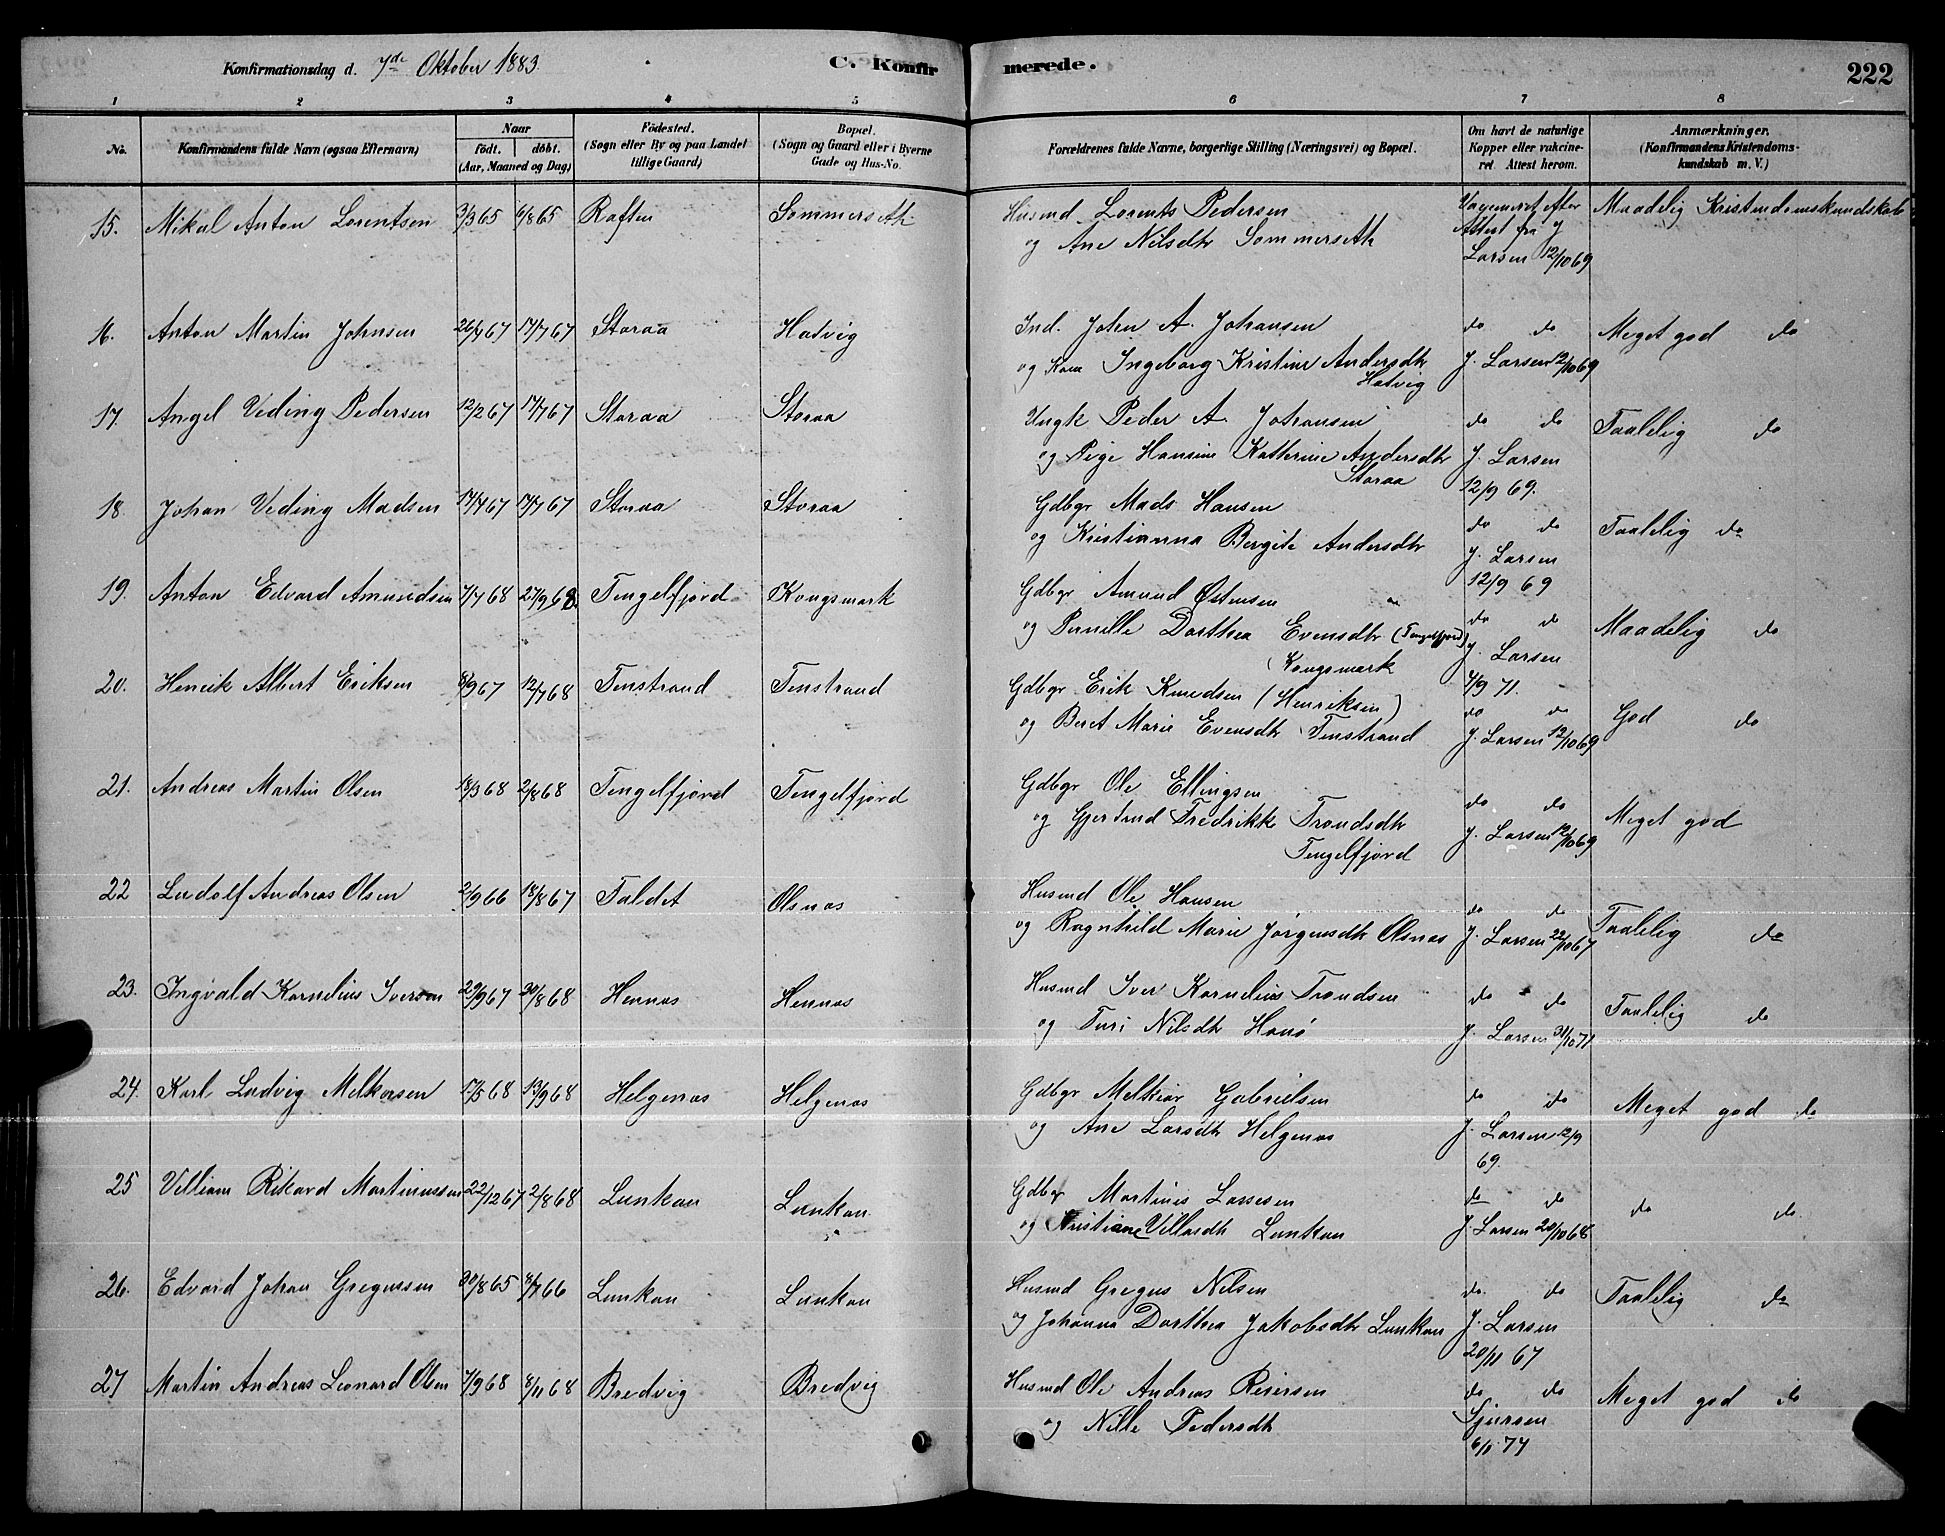 Konfirmationsdag d. 7de Oktober 1883.
C. Konfirmerede.
222
1 2 3 4 5 6 7 8
No.
Konfirmandens fulde Navn (ogsaa Efternavn)
Naar
födt. döbt.
(Aar, Maaned og Dag)
Födested.
(Sogn eller By og paa Landet
tillige Gaard)
Bopæl.
(Sogn og Gaard eller i Byerne
Gade og Hus-No.
Forældrenes fulde Navne, borgerlige Stilling (Næringsvei) og Bopæl.
Om havt de naturlige
Kopper eller vakcine-
ret. Attest herom.
Anmærkninger.
(Konfirmandens Kristendoms-
kundskab m. V.)
15. Mikal Anton Lorentsen 3/3 65 6/8 65 Raften Sommerseth
Husmd Lorents Pedersen
og Ane Nilsdtr Sommerseth
Attest fra J
Larsen 12/10 69
Maadelig Kristendomskundskab
16. Anton Martin Johnsen 26/4 67 14/7 67 Storaa Hatvig
Ind. John A. Johansen
og Kone Ingeborg Kristine Andersdtr
Hatvig
do do
J. Larsen 12/10 69
Meget god do
17. Angel Veding Pedersen 12/2 67 14/7 67 Storaa Storaa
Ungk Peder A. Johansen
og Pige Hansine Katherine Andersdtr
Storaa
do do
J. Larsen
12/9 69.
Taalelig do
18. Johan Veding Madsen 14/4 67 14/7 67 Storaa Storaa
Gdbgr Mads Hansen
og Kristianna Bergite Andersdtr
do do
J. Larsen
12/9 69
Taalelig do
19. Anton Edvard Amundsen 7/7 68 27/9 68. Tengelfjord Kongsmark
Gdbgr Amund Østensen
og Pernille Dorthea Evensdtr (Tengelfjord)
Kongsmark
do do
J. Larsen
4/9 71.
Maadelig do
20. Henrik Albert Eriksen 8/9 67 12/7 68 Tenstrand Tenstrand
Gdbgr Erik Knudsen (Henriksen)
og Beret Marie Evensdtr Tenstrand
do do
J. Larsen 12/10 69
God do
21. Andreas Martin Olsen 18/3 68 2/8 68 Tengelfjord Tengelfjord
Gdbgr Ole Ellingsen
og Gjertrud Fredrikke Trondsdtr
Tengelfjord
do do
J. Larsen 12/10 69
Meget god
22 Ludolf Andreas Olsen 2/9 66 18/8 67 Faldet Olsnas
Husmd Ole Hansen
og Ragnhild Marie Jørgensdtr Olsnas
do do
J. Larsen 22/10 67
Taalelig do
23. Ingvald Kornelius Iversen 29/9 67 30/8 68 Hennas Hennas
Husmd Iver Kornelius Trondsen
og Turi Nilsdtr Hanø
do do
J. Larsen 31/10 71
Taalelig do
24. Karl Ludvig Melkersen 17/5 68 13/9 68 Helgenas Helgenas
Gdbgr Melkior Gabrielsen
og Ane Larsdtr Helgenas
do do
J. Larsen 12/9
69.
Meget god do
25 Villiam Rikard Martinussen 22/12 67 2/8 68 Lunkan Lunkan
Gdbgr Martinus Lassesen
og Kristiane Villasdtr Lunkan
do do
J. Larsen 20/10 68
do do
26. Edvard Johan Gregussen 30/8 65 8/7 66 Lunkan Lunkan
Husmd Gregus Nilsen
og Johanna Dorthea Jakobsdtr Lunkan
do. do
J. Larsen
20/11 67
Taalelig do
27 Martin Andreas Leonard Olsen 7/9 68 8/11 68 Bredvig Bredvig
Husmd Ole Andreas Reiersen
og Nille Pedersdtr
do do
Sjursen
6/1 74
Meget god do